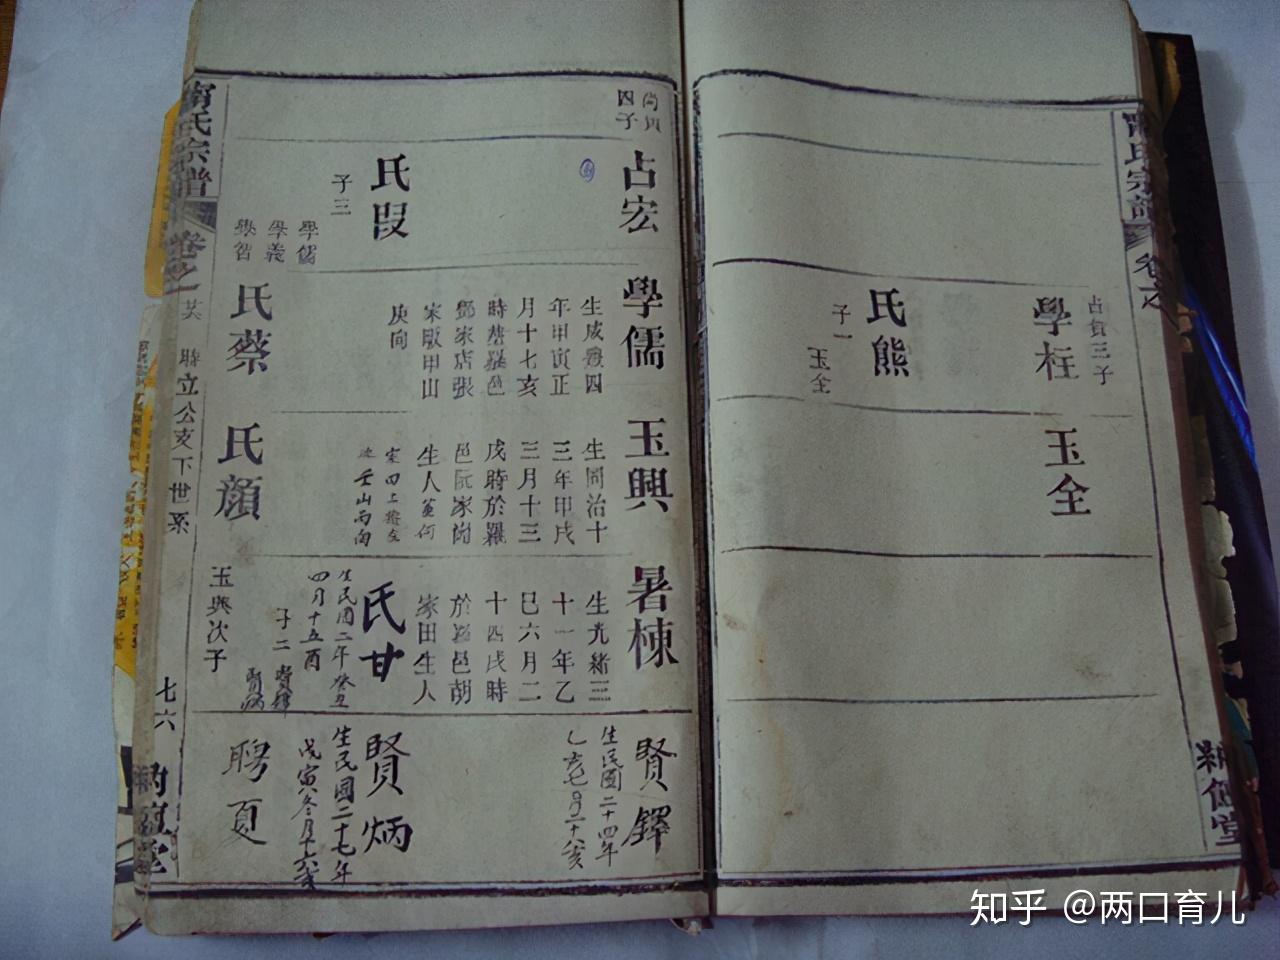 占賓三子
學柱
氏熊
子一
玉全
玉全
四子
占宏
氏段
子三
學儒
學義
學智
學儒
生咸豐四
年甲寅正
月十七亥
時塟羅邑
鄧家店張
宋畈甲山
庚向
氏蔡
玉興
生同治十
三年甲戌
三月十三
戌時於羅
邑阮家崗
生人
氏顔
暑棟
生光緒三
十一年乙
巳六月二
十四戌時
於羅邑胡
家田生人
氏甘
生民國二年癸丑
四月十五酉
子二
賢鐸
賢炳
玉興次子
賢鐸
生民國二十四年
乙亥七月二十八亥
賢炳
生民國二十七年
戊寅冬月十六亥
聘夏
氏宗譜
卷之一
聯立公支下世系
七六
知乎 @两口育儿